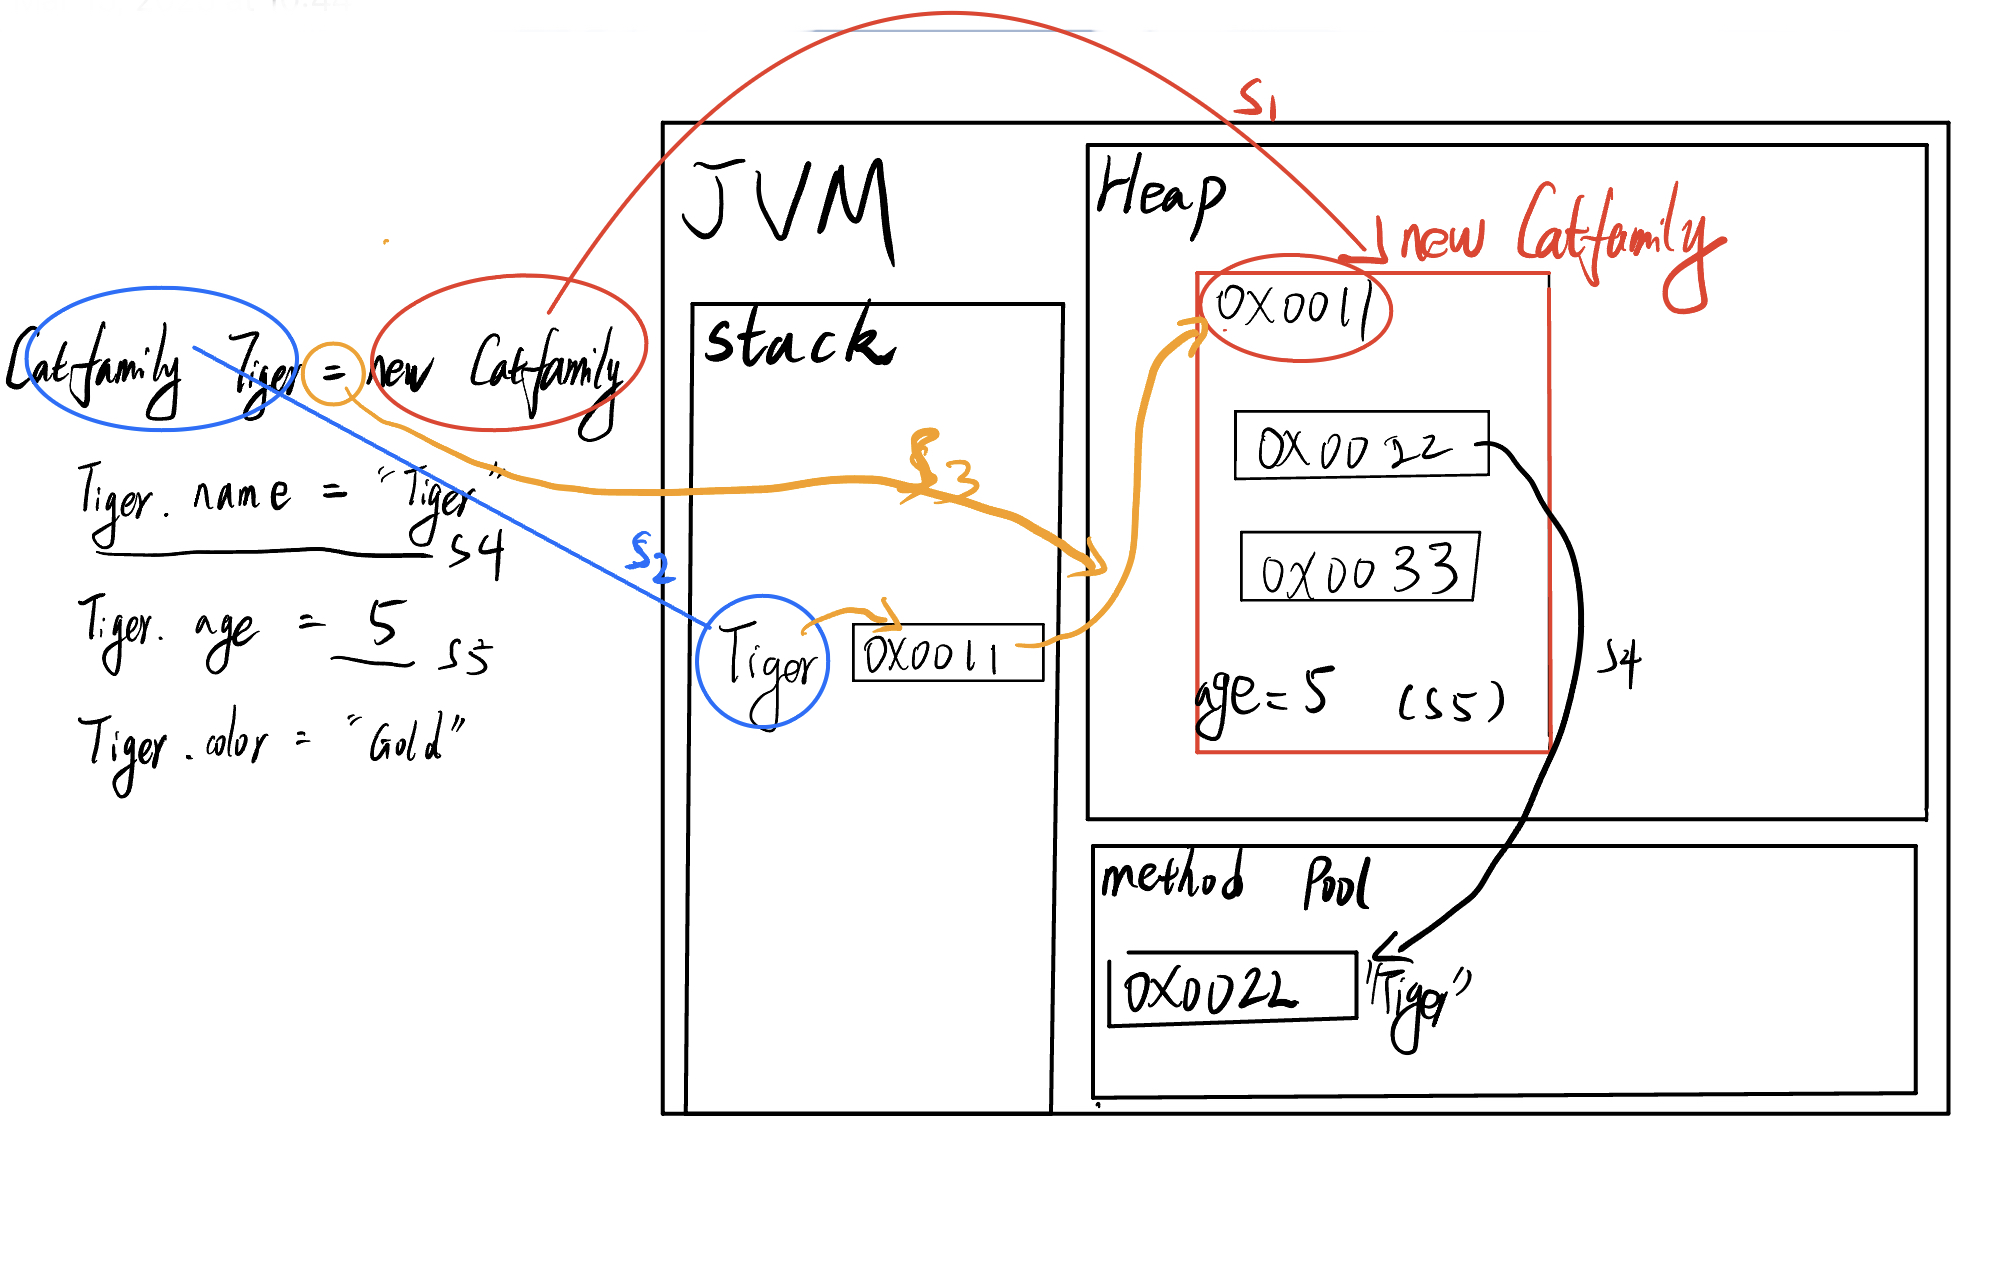 Catfamily Tiger = new Catfamily
Tiger. name = "Tiger"
S4
Tiger. age = 5
S5
Tiger. color = "Gold"
S1
S2
S3
JVM
stack
Tiger
0X0011
Heap
new Catfamily
0X0011
0X0022
0X0033
age = 5 (S5)
S4
method Pool
0X0022 "Tiger"